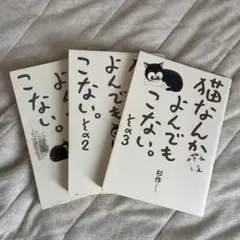 猫なんか
よんでも
こない。
その3
杉作
よんでも
こない。
その2
よんでも
こない。